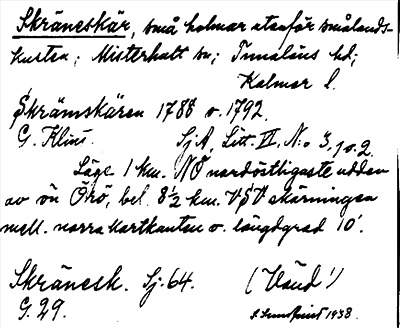 Skräneskär, små holmar utanför smålands-
kusten; Misterhult sn; Tunaläns hd;
Kalmar l.
Skrämskären 1788 o. 1792.
G. Klint. SjA, Litt. VI, No 3, 1 o. 2.
Läge 1 km. NO nordöstligaste udden
av ön Örö, bel. 8½ km. VSV skärningen
mell. norra kartkanten o. längdgrad 10'.
Skränesk. Sj. 64. (Vänd!)
G. 29. 1938.